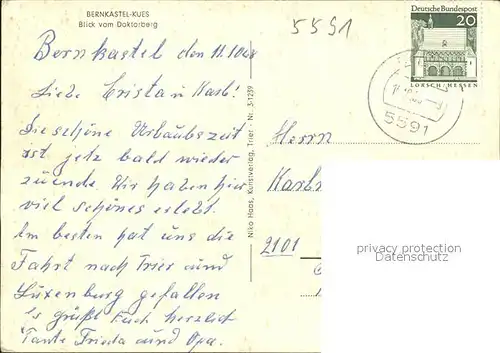 BERNKASTEL-KUES
Blick vom Doktorberg
5591
Deutsche Bundespost
20
LORSCH/HESSEN
5591
Bernkastel den 11.10.68
Liebe Crista u Karl!
Die schöne Urlaubszeit
ist jetz bald wieder
zuende. Wir haben hier
viel schönes erlebt.
Am besten hat uns die
Fahrt nach Trier und
Luxenburg gefallen
Es grüßt Euch herzlich
Tante Frieda und Opa.
Niko Haas, Kunstverlag, Trier - Nr. 3-1239
Herrn
Karl
2101
privacy protection
Datenschutz